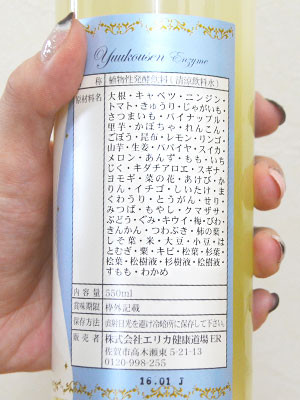 Yuukousen Enzyme
称 植物性発酵飲料(清涼飲料水)
原材料名
大根・キャベツ・ニンジン・
トマト・きゅうり・じゃがいも・
さつまいも・パイナップル・
里芋・かぼちゃ・れんこん・
ごぼう・昆布・レモン・リンゴ・
山芋・生姜・パパイヤ・スイカ・
メロン・あんず・もも・いち
じく・キダチアロエ・スギナ・
ヨモギ・菜の花・あけび・か
りん・イチゴ・しいたけ・ま
くわうり・とうがん・せり・
みつば・もやし・クマザサ・
ぶどう・ぐみ・キウイ・梅・びわ・
きんかん・つわぶき・柿の葉・
しそ葉・米・大豆・小豆・は
とむぎ・粟・キビ・松葉・杉葉・
松葉・松樹液・杉樹液・桧樹液・
すもも・わかめ
内容量 550ml
賞味期限 枠外記載
保存方法 直射日光を避け冷暗所に保存して下さい
販売者 株式会社エリカ健康道場ER
佐賀市高木瀬東5-21-13
0120-998-255
16.01 J